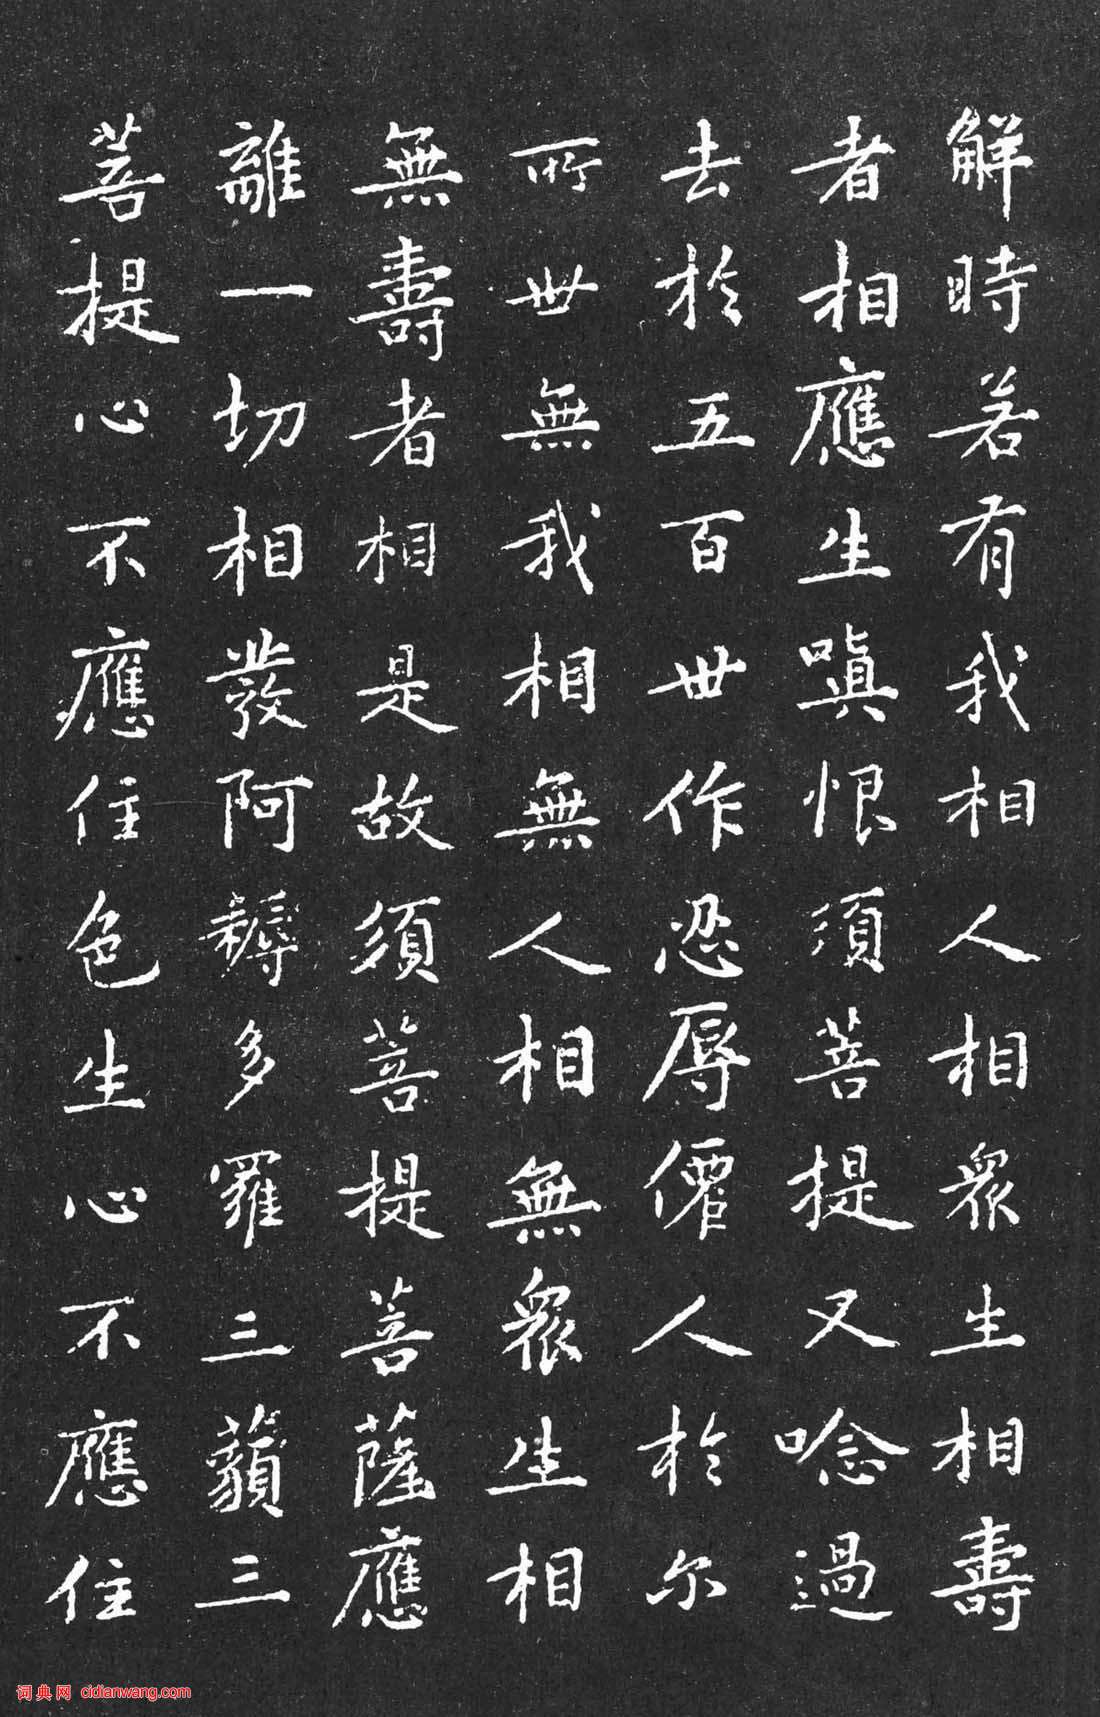 解時若有我相人相衆生相壽
者相應生嗔恨須菩提又唸過
去於五百世作忍辱僊人於尔
所世無我相無人相無衆生相
無壽者相是故須菩提菩薩應
離一切相發阿耨多羅三藐三
菩提心不應住色生心不應住
词典网 cidianwang.com